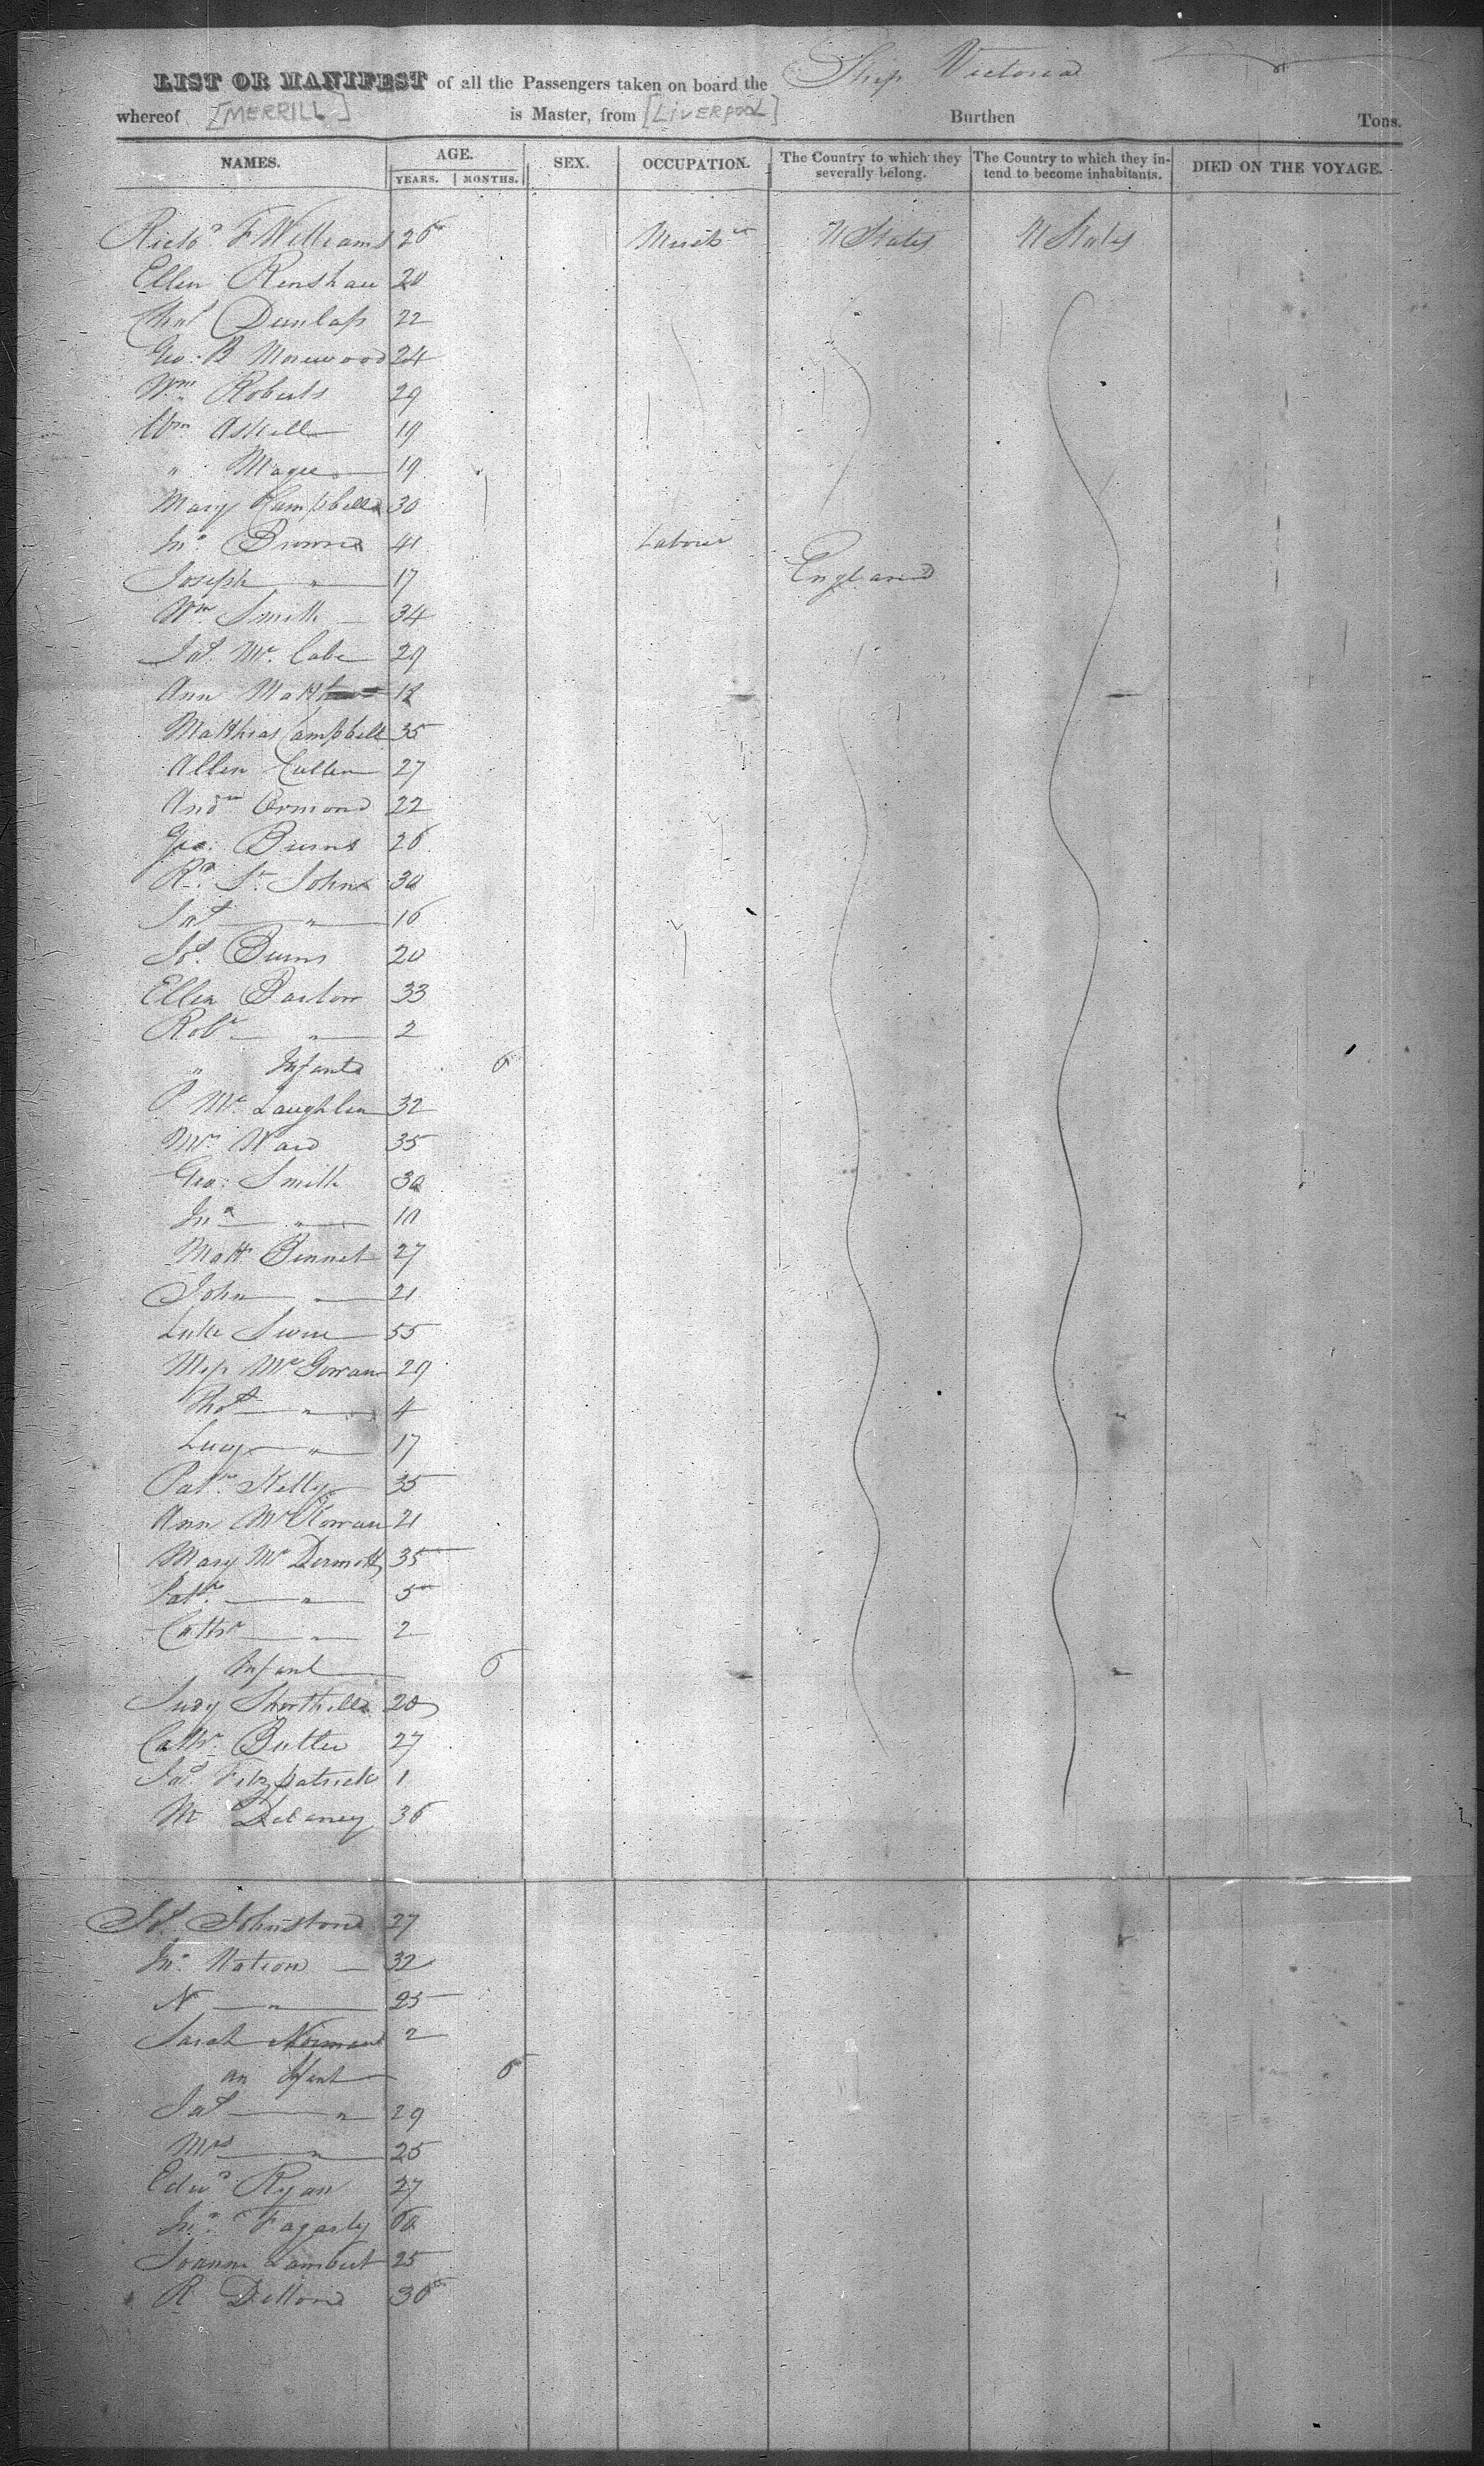 LIST OR MANIFEST of all the Passengers taken on board the Ship Victoria
whereof [MERRILL] is Master, from [LIVERPOOL] Burthen Tons.
NAMES. AGE. YEARS. MONTHS. SEX. OCCUPATION. The Country to which they severally belong. The Country to which they intend to become inhabitants. DIED ON THE VOYAGE.
Richd. F Williams 26 U States U States
Ellen Renshaw 20
Chas Dunlap 22
Geo: B Morewood 24
Wm Roberts 29
Wm Askell 19
" Magee 19
Mary Campbell 30
Jno. Brown 41 Labourer
Joseph " 17 England
Wm Smith 34
Jas. Mc. Cabe 29
Ann 12
Matthias Campbell 35
Allen Cullen 27
Andw Ormond 22
Geo: Burns 26
Rd. St. Johns 30
Jas " 16
Jos. Burns 20
Ellen Barlow 33
Robt " 2
" Infant 6
P. Mc. Laughlin 32
Ward 35
Geo: Smith 30
Jno " 10
Matt Bennet 27
John " 21
Luke 55
Mc Gowan 29
Thos " 4
Lucy " 17
Patk. Kelly 35
Ann Mc Kowan 21
Mary Mc Dermott 35
Patk. " 5
Cathr " 2
Infant 6
Judy 20
Cathr. Butler 27
Jas. Fitzpatrick 1
M Delaney 36
Jos. Johnstone 27
Jno. Watson 32
N " 25
Sarah Norman 2
an Infant 6
Jas " 29
Mrs " 25
Edwd. Ryan 27
Jno. Fagarty 60
Joanna Lambert 25
R Dillon 36